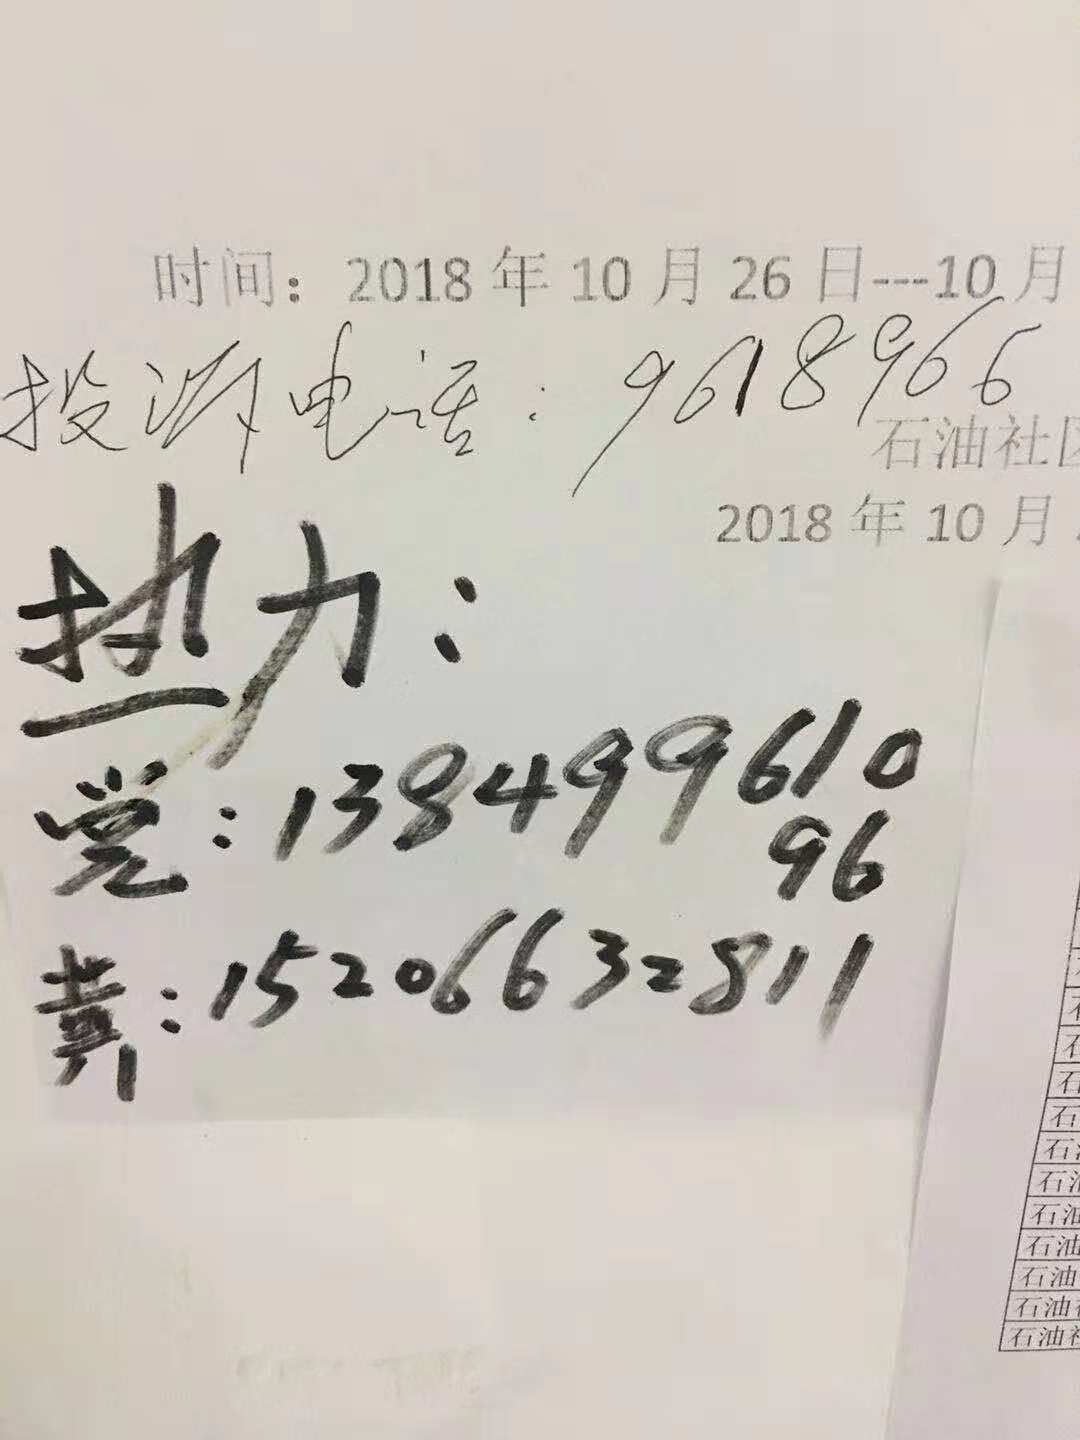 时间：2018 年 10 月 26 日---10 月
投诉电话：9618966
石油社区
2018 年 10 月
热力：
党：13849961096
龚：15206632811
石
石
石
石油
石油
石油
石油
石油社
石油社